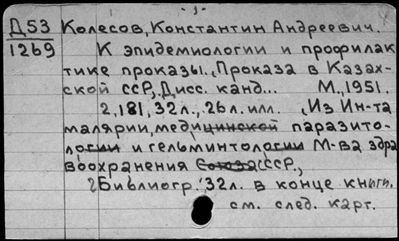 Д53 Колесов, Константин Андреевич.
1269 К эпидемиологии и профилак
тике проказы. "Проказа в Казах-
ской ССР". Дисс. канд... М., 1951.
2, 181, 32л., 26л. илл. "Из Ин-та
малярии, медицинской паразито-
логии и гельминтологии М-ва здра
воохранения Союза ССР".
Библиогр. 32л. в конце книги.
см. след. карт.